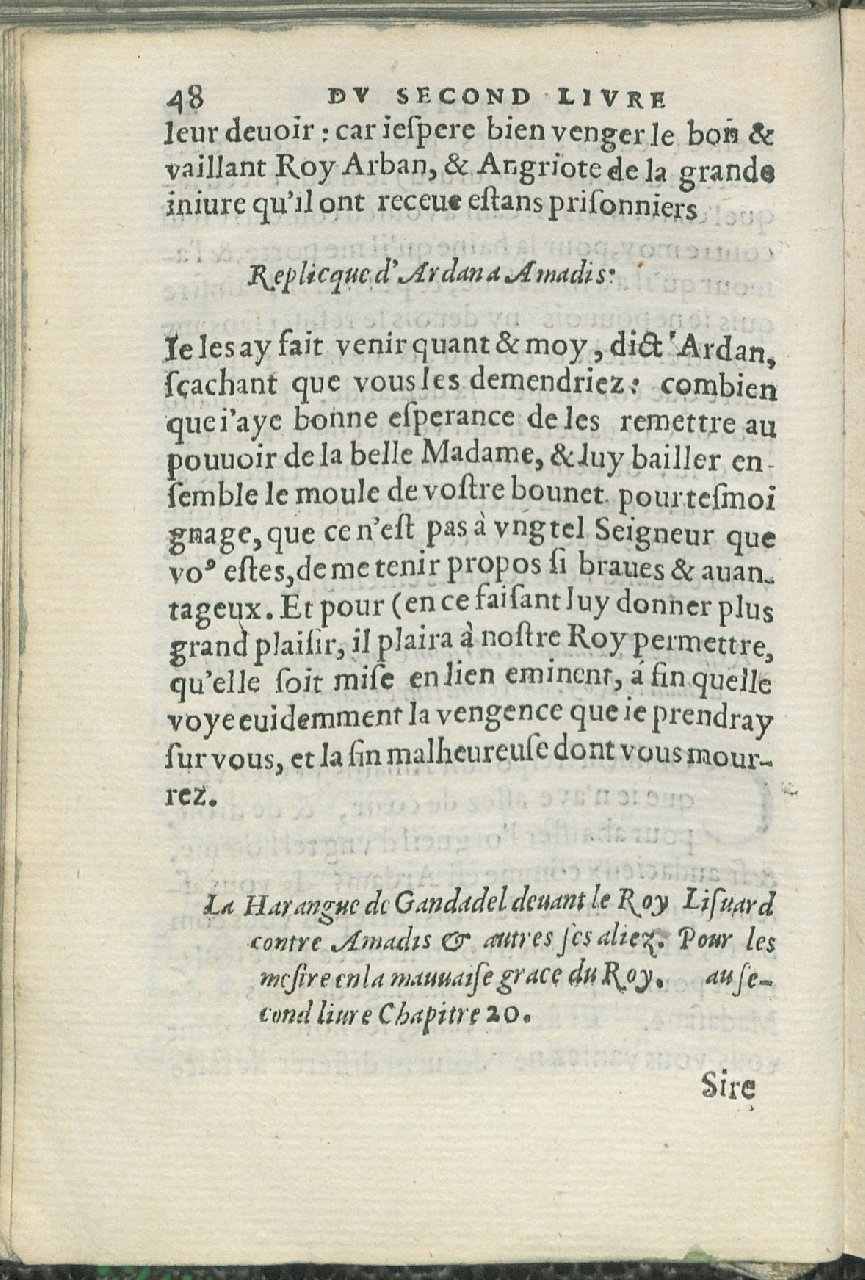 48 DV SECOND LIVRE
leur deuoir : car ieſpere bien venger le bon &
vaillant Roy Arban, & Angriote de la grande
iniure qu'il ont receue eſtans priſonniers
Replicque d'Ardan a Amadis:
Ie les ay fait venir quant & moy, dict Ardan,
ſçachant que vous les demendriez : combien
que i'aye bonne eſperance de les remettre au
pouuoir de la belle Madame, & luy bailler en-
ſemble le moule de voſtre bounet pour teſmoi
gnage, que ce n'eſt pas à vng tel Seigneur que
voꝰ eſtes, de me tenir propos ſi braues & auan-
tageux. Et pour (en ce faiſant luy donner plus
grand plaiſir, il plaira à noſtre Roy permettre,
qu'elle ſoit miſe en lien eminent, á fin quelle
voye euidemment la vengence que ie prendray
ſur vous, et la fin malheureuſe dont vous mour-
rez.
La Harangue de Gandadel deuant le Roy Liſuard
contre Amadis & autres ſes aliez. Pour les
meſtre en la mauuaiſe grace du Roy. au ſe-
cond liure Chapitre 20.
Sire